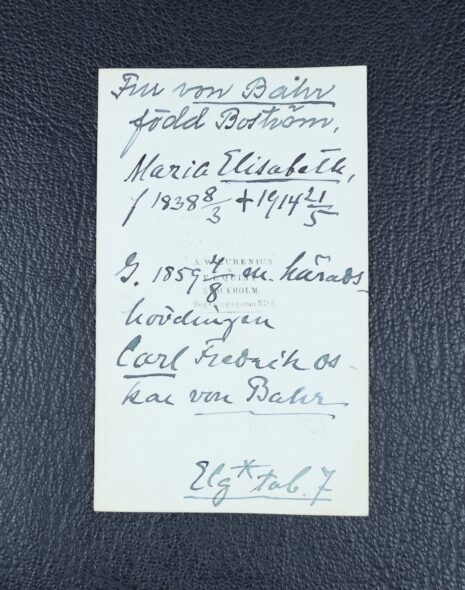 Fru von Bahr
född Boström,
Maria Elisabeth,
f 1838 8/3 + 1914 21/5
G. 1859 4/8 m. härads
hövdingen
Carl Fredrik Os-
kar von Bahr
STOCKHOLM.
Elg* tab. 7